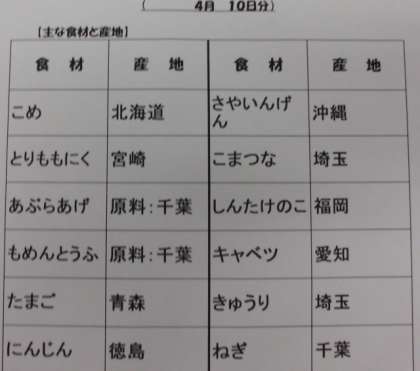 (　　　4月　10日分)
【主な食材と産地】
食　材　産　地　食　材　産　地
こめ　北海道　さやいんげん　沖縄
とりももにく　宮崎　こまつな　埼玉
あぶらあげ　原料：千葉　しんたけのこ　福岡
もめんとうふ　原料：千葉　キャベツ　愛知
たまご　青森　きゅうり　埼玉
にんじん　徳島　ねぎ　千葉